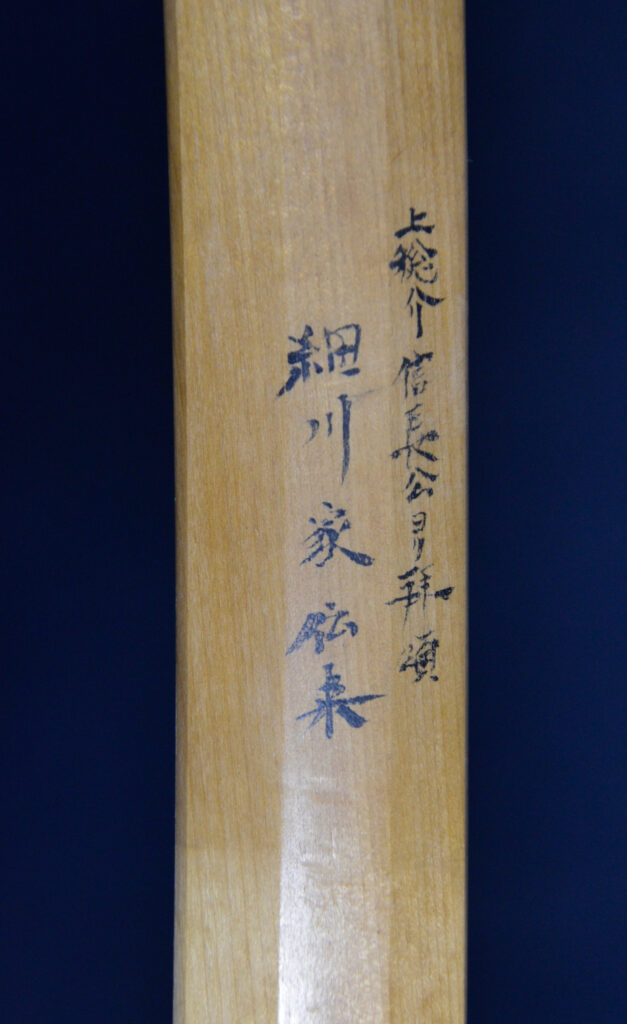 上総介信長公ヨリ拝領
細川家伝来